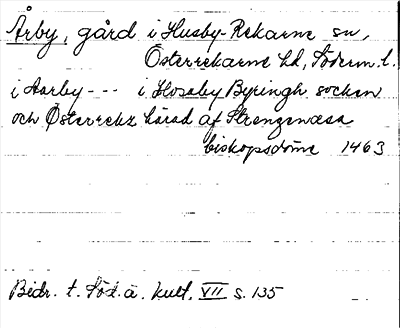 Årby, gård i Husby-Rekarne sn,
Österrekarne hd, Söderm. l.
i Aarby --- i Hosaby Byringh socken
och Österrekz härad af Strengenæsa
biskopsdöme 1463
Bidr. t. Söd. ä. kult. VII s. 135